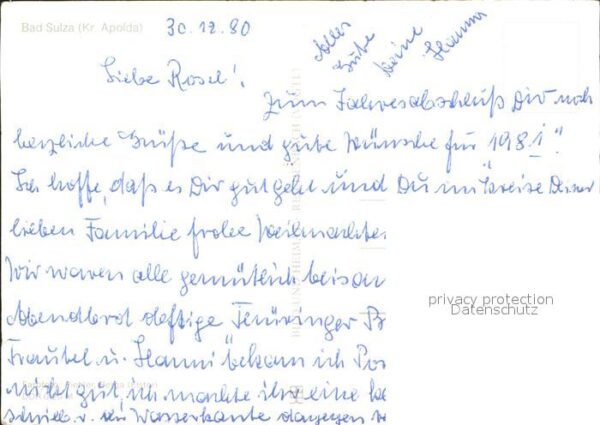 Bad Sulza (Kr. Apolda)
30.12.80
Alles
Gute
Deine
Hanna
Liebe Rosel!
Zum Jahresabschluß Dir noch
herzliche Grüße und gute Wünsche für 1981!
Ich hoffe, daß es Dir gut geht und Du im Kreise Deiner
lieben Familie frohe Weihnachten
Wir waren alle gemütlich beisam
Abendbrot deftige Thüringer B
Trautel u. Hanni bekam ich Pos
nicht gut, ich machte ihr eine
Wasserkante dagegen
privacy protection
Datenschutz